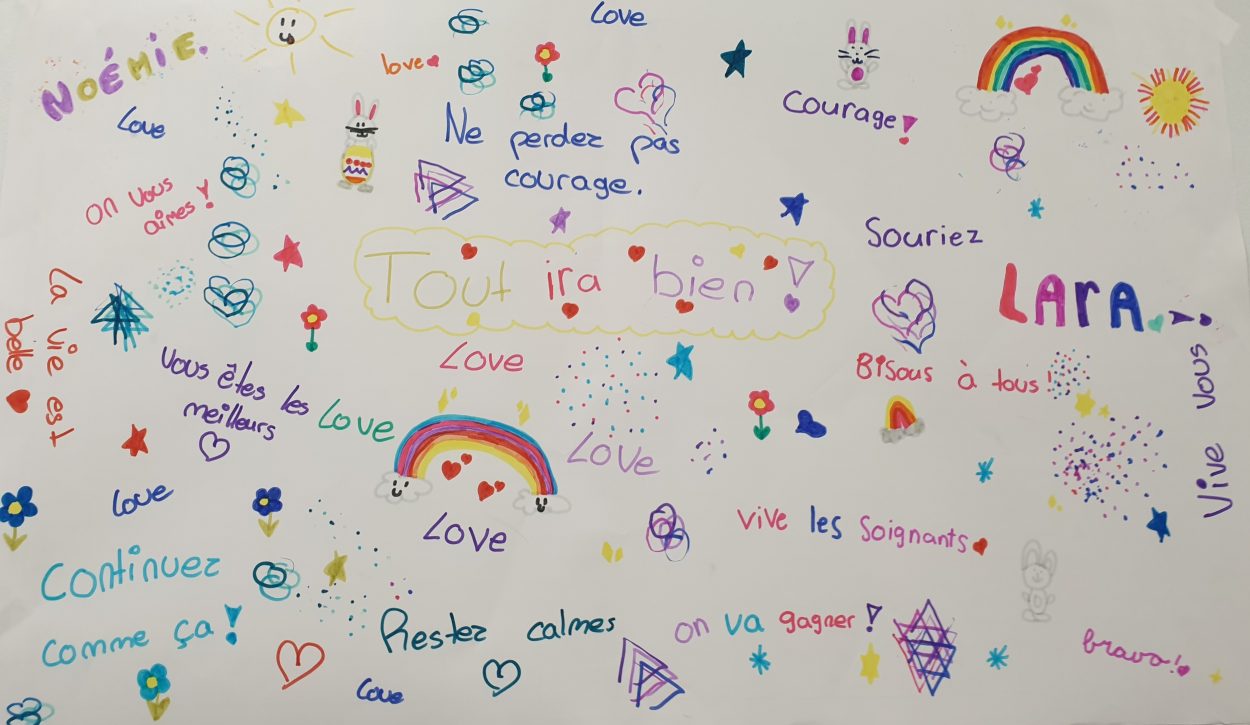 NOÉMIE.
Love
love
Love
Ne perdez pas
courage.
Courage!
on vous
aimes!
Souriez
Tout ira bien!
LARA.
La vie est
belle
Vous êtes les
meilleurs
Love
Love
Love
Bisous à tous!
Vive vous
Love
Love
vive les soignants
Continuez
comme ça!
Restez calmes
on va gagner!
bravo!
Love